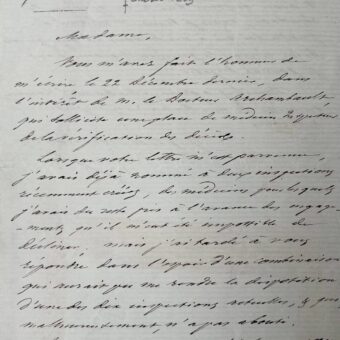 Madame,
Vous m'avez fait l'honneur de
m'écrire le 22 Décembre dernier, dans
l'intérêt de M. le Docteur Archambault,
qui sollicite une place de médecin Inspecteur
de la vérification des décès.
Lorsque votre lettre m'est parvenue,
j'avais déjà nommé à deux inspections
récemment créées, des médecins pour lesquels
j'avais du reste pris à l'avance des engage-
-ments qu'il m'eut été impossible de
décliner. Mais j'ai tardé à vous
répondre dans l'espoir d'une combinaison
qui aurait pu me rendre la disposition
d'une des dix inspections actuelles, & qui
malheureusement, n'a pas abouti.